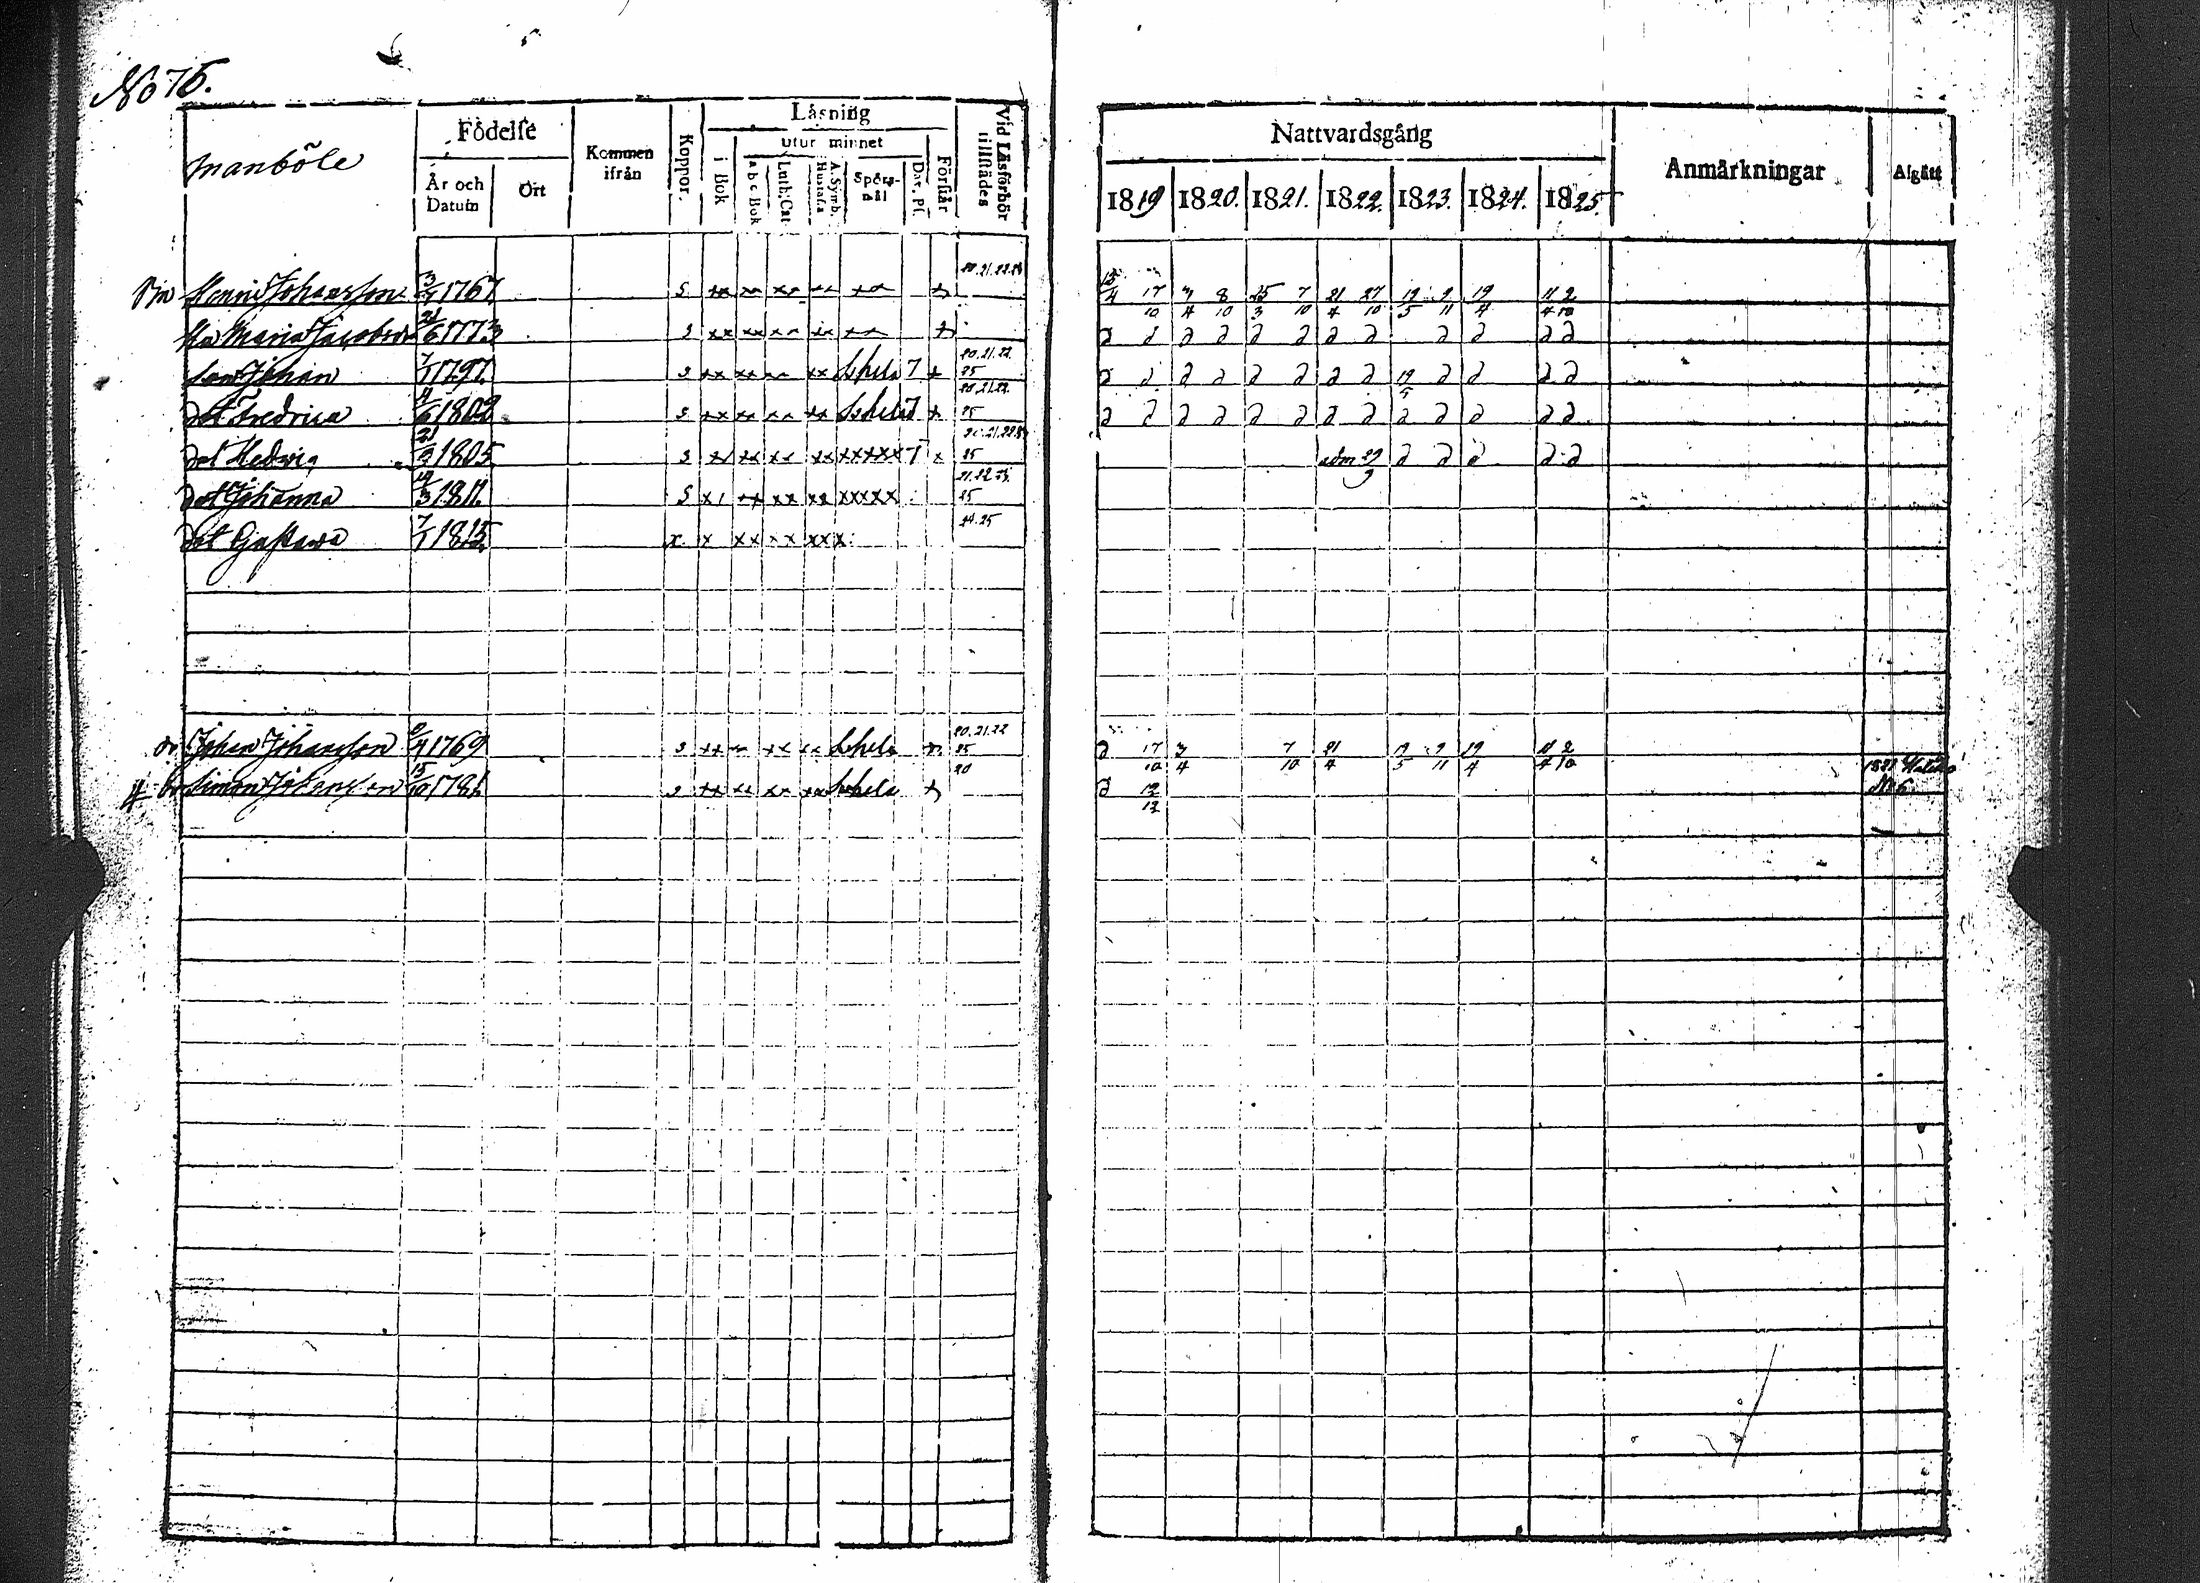 No 76.
manböle
Födelse
År och Datum
Ort
Kommen ifrån
Koppor.
Låsning
i Bok
utur minnet
a b c Bok
Luth. Cat
A. Symb. Hustafla
Spörs-mål
Dav. Ps
Förstår
Vid Låsförhör tillstådes
Nattvardsgång
1819 1820. 1821. 1822. 1823. 1824. 1825.
Anmårkningar
Afgått
Henric Johansson 3/4 1767. s xx xx xx xx xx x 20.21.22.24 13/4 17/10 3/4 8/10 25/3 7/10 21/4 27/10 19/5 9/11 19/4 11/4 2/10
Maria Jacobsdr 21/6 1773 s xx xx xx xx xx x d d d d d d d d d d d d d
son Johan 7/1 1797. s xx xx xx xx hela 7 x 20.21.22. 25 d d d d d d d d 19/5 d d d d
dot Fredrica 11/6 1802 s xx xx xx xx hela 7 x 20.21.22. 25 d d d d d d d d d d d d d
dot Hedvig 21/3 1805 s xx xx xx xx xxxxx 7 x 25 adm 29/9 d d d d d
dot Johanna 19/3 1811. s x xx xx xx xxxxx 21.22.23. 25
dot Gustava 7/1 1815 x x xx xx xxx 24.25
Johan Johansson 9/4 1769 s xx xx xx hela x 20.21.22 25 d 17/10 3/4 7/10 21/4 19/5 9/11 19/4 11/4 2/10
Simon Johansson 15/10 1781 s xx xx xx xx hela x 20 d 12/12 1821
No 6.